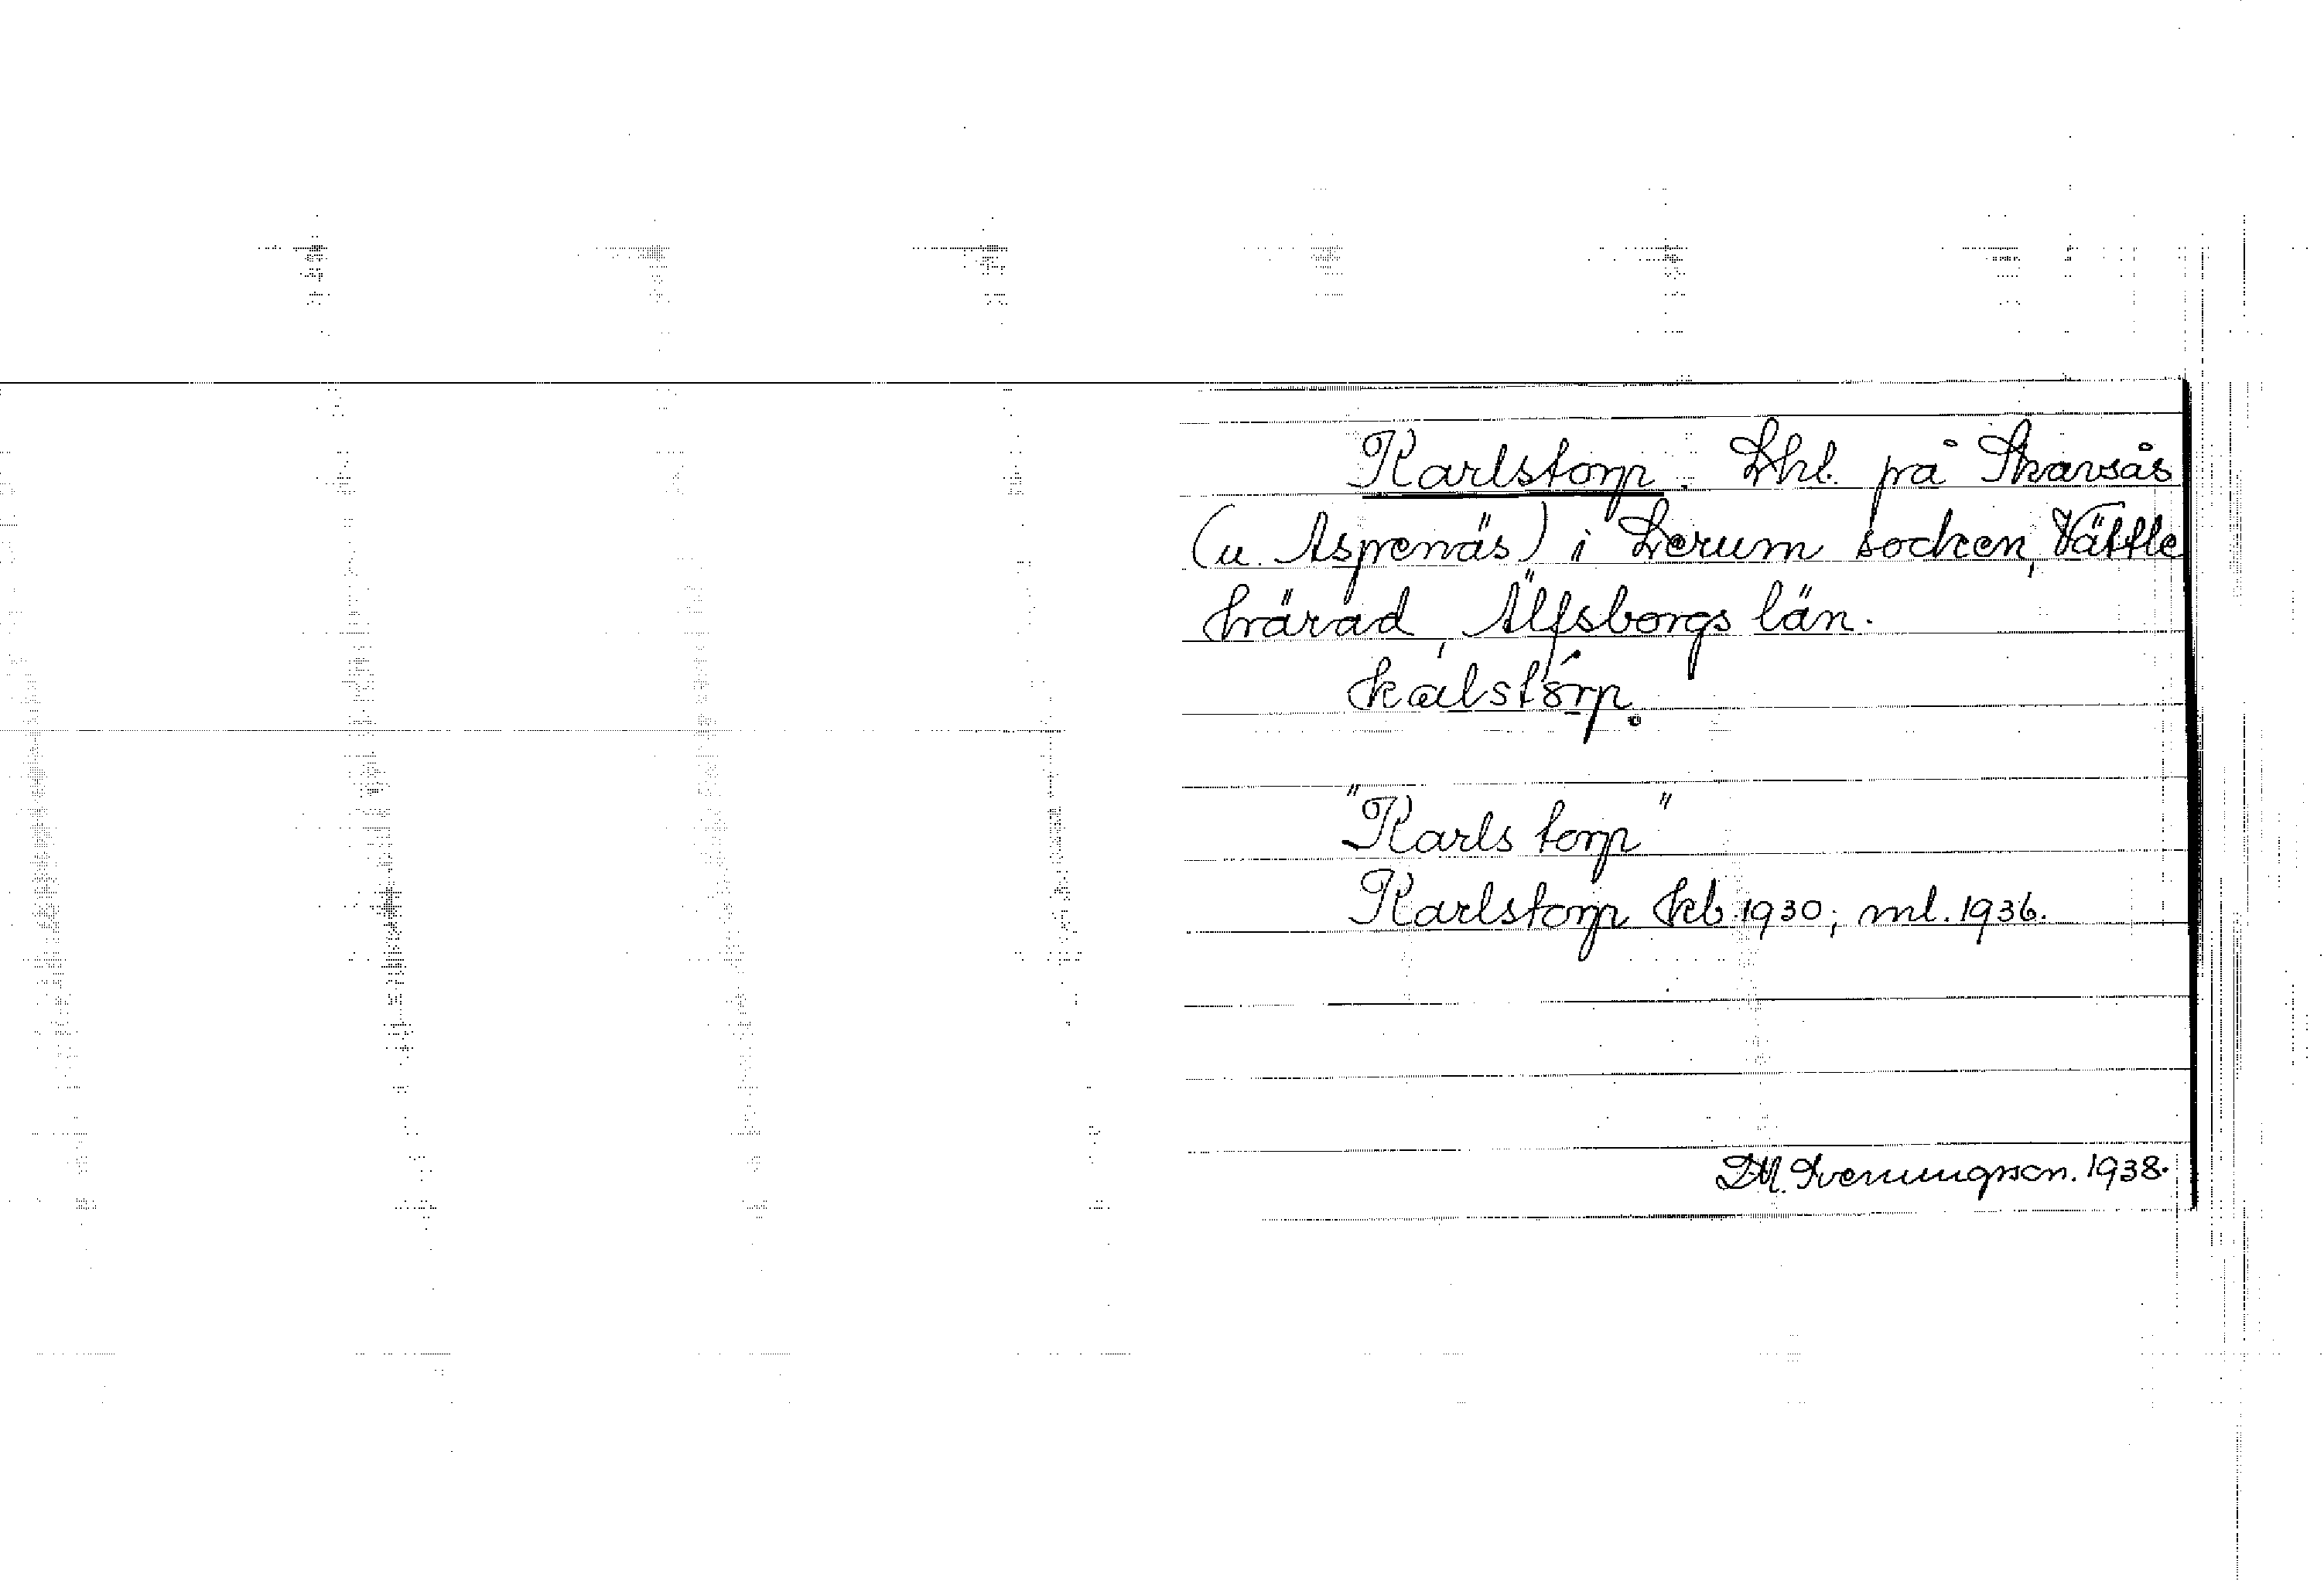 Karlstorp. Lhl. på Skarsås
(u. Aspenäs) i Lerum socken, Vättle
härad, Älfsborgs län.
kalstórp.
"Karls torp"
Karlstorp kb 1930; ml. 1936.
D.M. Svenungson. 1938.